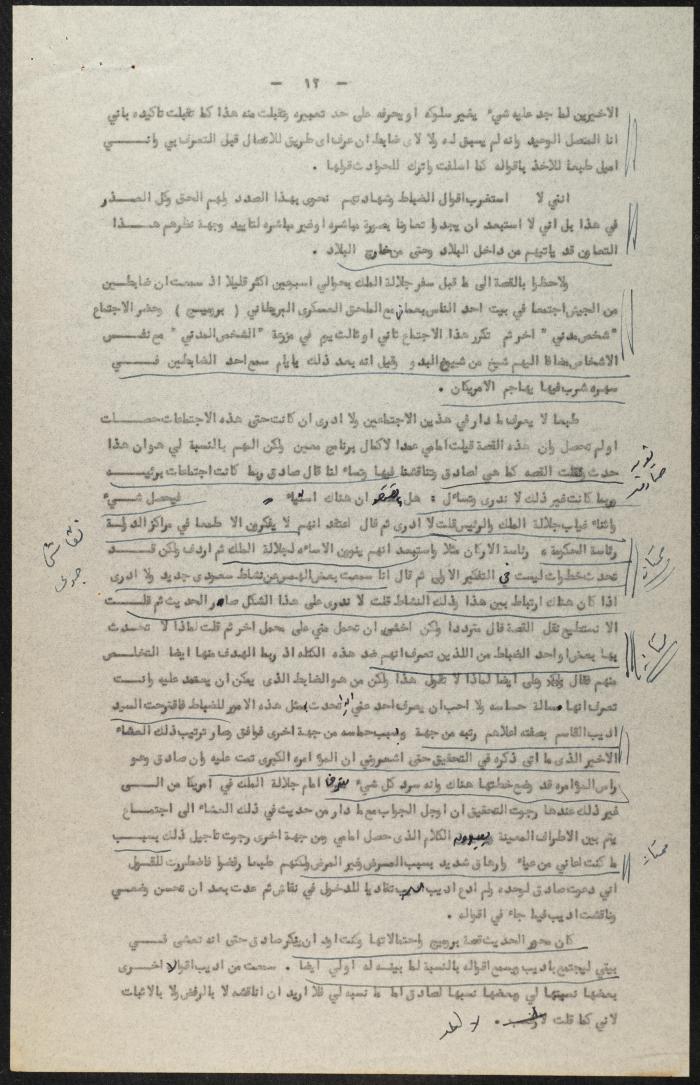 - ١٢ -
الاخيرين لما جد عليه شيء يغير سلوكه او يحرفه على حد تعبيره وتقبلت منه هذا كما تقبلت تاكيده باني
انا المتصل الوحيد وانه لم يسبق له ولا لاى ضابط ان عرف اى طريق للاتصال قبل التعرف بي وانـــي
اميل طبعا للاخذ باقواله كما اسلفت واترك للحوادث قولها .
انني لا استغرب اقوال الضباط وشهادتهم نحوى بهذا الصدد ولهم الحق وكل العـــذر
في هذا بل اني لا استبعد ان يجدوا تعاونا بصورة مباشره او غير مباشره لتاييد وجهة نظرهم هـــذا
التعاون قد ياتيهم من داخل البلاد وحتى من خارج البلاد .
ولاحظوا بالقصة الى ما قبل سفر جلالة الملك بحوالي اسبوعين اكثر قليلا اذ سمعت ان ضابطـين
من الجيش اجتمعا في بيت احد الناس بعمان مع الملحق العسكرى البريطاني ( بروميج ) وحضر الاجتماع
"شخص مدني" اخر ثم تكرر هذا الاجتماع ثاني او ثالث يوم في مزرعة "الشخص المدني" مع نفـــس
الاشخاص مضافا اليهم شيخ من شيوخ البدو وقيل انه بعد ذلك بايام سمع احد الضابطين فـــي
سهره شرب فيها يهاجم الامريكان .
طبعا لا يعرف ما دار في هذين الاجتماعين ولا ادرى ان كانت حتى هذه الاجتماعات حصـــلت
او لم تحصل وان هذه القصة قيلت امامي عمدا لاكمال برنامج معين ولكن المهم بالنسبة لي هو ان هذا
حدث ونقلت القصه كما هي لصادق وتناقشنا فيها وتساءلنا قال صادق ربما كانت اجتماعات بريئـــه
وربما كانت غير ذلك لا ندرى وتساءل : هل ان هناك استياء فيحصل شـــيء
واثناء غياب جلالة الملك والرئيس قلت لا ادرى ثم قال اعتقد انهم لا يفكرون الا طمعا في مراكز الدولـــة
رئاسة الحكومة ، رئاسة الاركان مثلا واستبعد انهم ينوون الاساءه لجلالة الملك ثم اردف ولكن قـــد
تحدث خطوات ليست في التفكير الاولى ثم قال انا سمعت بعض الهمس عن نشاط سعودى جديد ولا ادرى
اذا كان هناك ارتباط بين هذا وذلك النشاط قلت لا ندرى على هذا الشكل صار الحديث ثم قلـــت
الا نستطيع نقل القصة قال مترددا ولكن اخشى ان تحمل مني على محمل اخر ثم قلت لماذا لا تتحدث
بها بعضا واحد الضباط من اللذين تعرف انهم ضد هذه الكتله اذ ربما الهدف منها ايضا التخلـــص
منهم فقال ايضا لماذا لا نقول هذا ولكن من هو الضابط الذى يمكن ان يعتمد عليه وانـــت
تعرف انها مسالة حساسه ولا احب ان يعرف احد عني اني اتحدث بمثل هذه الامور للضباط فاقترحت السيد
اديب القاسم بصفته اعلاهم رتبه من جهة وبسبب حماسه من جهة اخرى فوافق وصار ترتيب ذلك العشاء
الاخير الذى ما اتى ذكره في التحقيق حتى اشعروني ان المؤامره الكبرى تمت عليه وان صادق وهو
راس المؤامره قد وضع خطتها هناك وانه سرد كل شيء امام جلالة الملك في امريكا من الـــى
غير ذلك عندها رجوت التحقيق ان اوجل الجواب مع ما دار من حديث في ذلك العشاء الى اجتمـــاع
يتم بين الاطراف المعينة الكلام الذى حصل امامي ومن جهة اخرى رجوت تاجيل ذلك بسبـــب
ما كنت اعاني من عياء وارهاق شديد بسبب المرض وغير المرض ولكنهم طبعا رفضوا فاضطررت للقـــول
اني دعوت صادق لوحده ولم ادع اديب تفاديا للدخول في نقاش ثم عدت بعد ان تحسن وضعـــي
وناقشت اديب فيما جاء في اقواله .
كان محور الحديث قصة بروميج واحتمالاتها وكنت اود ان يفكر صادق حتى انه تعشى فـــي
بيتي ليجتمع باديب ويسمع اقواله بالنسبة لما بيننا له او لي ايضا . سمعت من اديب اقوالا اخـــرى
بعضها نسبتها لي وبعضها نسبها لصادق اما ما نسبه لي فلا اريد ان اناقشه لا بالرفض ولا بالاثبات
لاني كما قلت